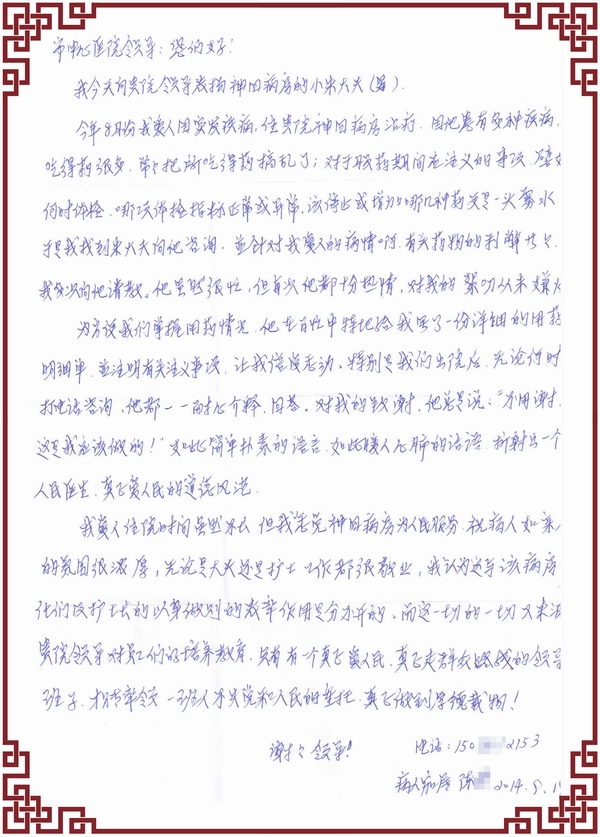 市中心医院领导：您们好！
我今天向贵院领导表扬神内病房的小宋大夫（男）.
今年8月份我爱人因突发疾病，住贵院神内病房治疗．因他患有多种疾病，
吃得药很多，常常把所吃得药搞乱了；对于服药期间应注意的事项，
何时体检，哪项体检指标正常或异常，该停止或增加哪几种药更是一头雾水
于是我找到宋大夫向他咨询，并针对我爱人的病情，有关药物的
我多次向他请教。他虽然很忙，但每次他都十分热情，对我的 从未嫌
为方便我们掌握用药情况，他在百忙中特地给我写了一份详细的用药
明细单，并注明有关注义事项，让我倍受感动。特别是我们出院后，无论何时
打电话咨询，他都一一耐心介释、回答。对我的致谢，他总是说："不用谢，
这是我应该做的！"如此简单朴素的语言，如此暖人心肺的话语，折射出一个
人民医生，真正爱人民的道德风范。
我爱人住院时间虽然不长，但我感觉神内病房为人民服务，视病人如亲
的氛围很浓厚，无论是大夫还是护士工作都很敬业，我认为这与该病房
任们及护士长的以身做则的表率作用是分不开的，而这一切的一切又来源
贵院领导对员工们的培养教育，只有有一个真正爱人民，真正走群众路线的领导
班子，才能率领一班人不负党和人民的重托，真正做到厚德载物！
谢谢领导！
电话：150 2153
病人家属 陈 2014.9.1